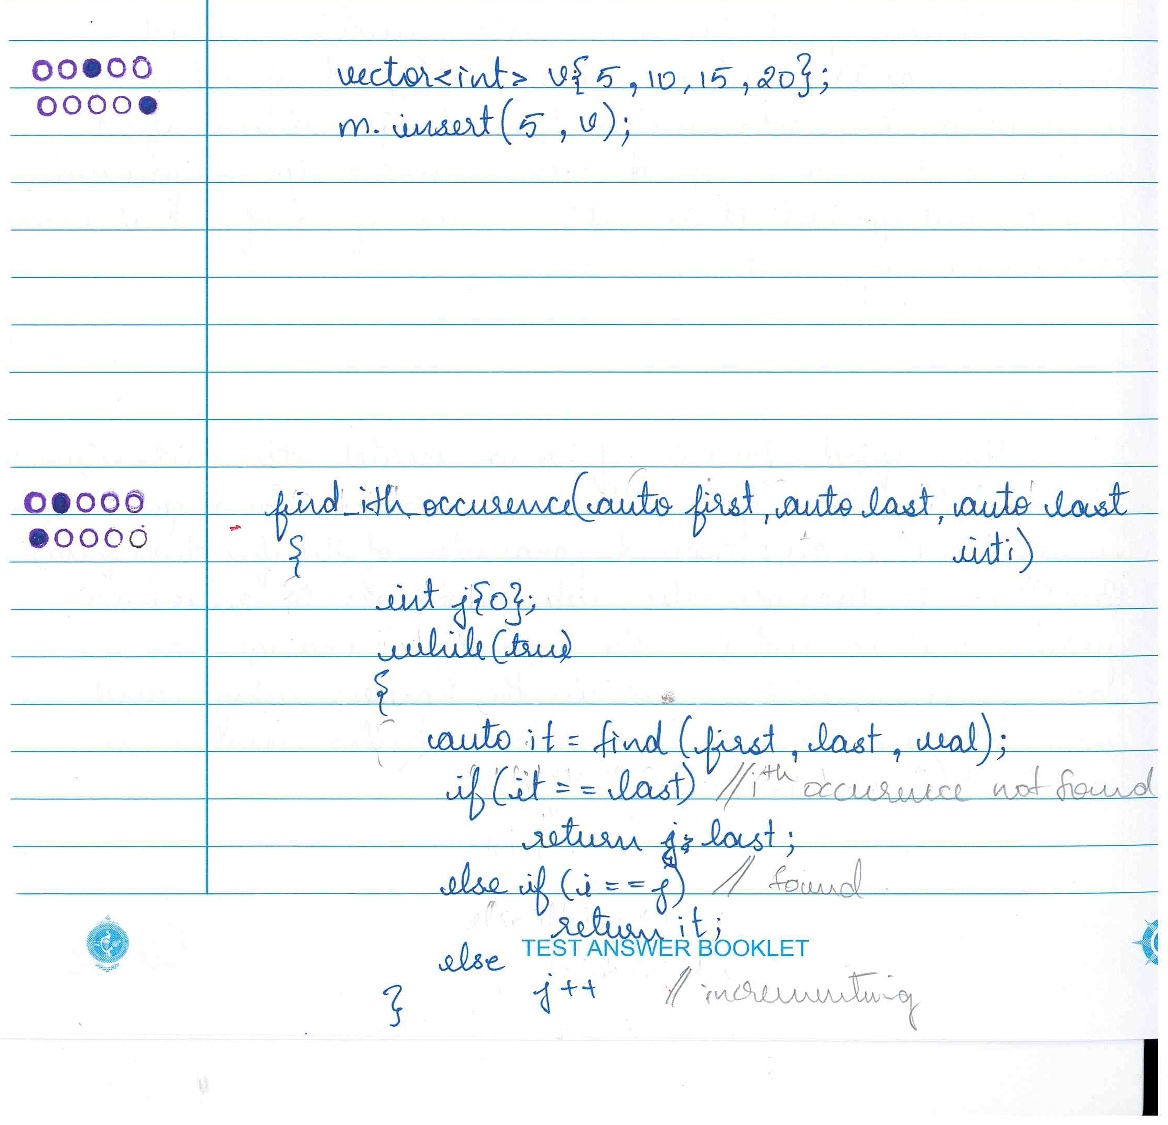 vector<int> v{5, 10, 15, 20};
m. insert(5, v);
find_ith_occurence(auto first, auto last, auto last
int i)
{
int j{0};
while(true)
{
auto it = find (first, last, val);
if(it == last) //ith occurence not found
return last;
else if (i == j) // found
return it;
TEST ANSWER BOOKLET
else
j++ // incrementing
}